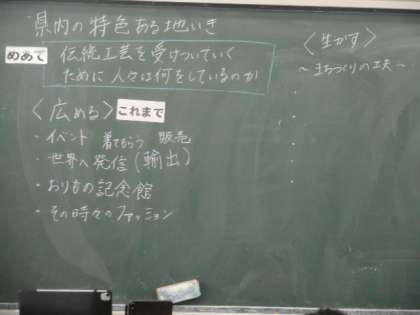 県内の特色ある地いき
めあて
伝統工芸を受けついでいく
ために人々は何をしているのか
〈広める〉 これまで
・イベント 着てもらう 販売
・世界へ発信(輸出)
・おりもの記念館
・その時々のファッション
〈生かす〉
～まちづくりの工夫～